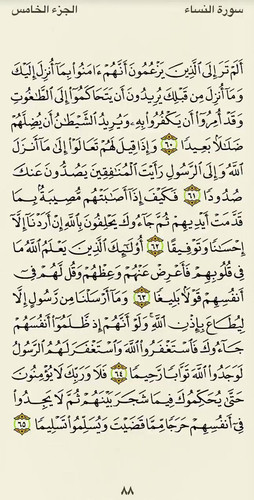 سورة النساء
الجزء الخامس
أَلَمْ تَرَ إِلَى ٱلَّذِينَ يَزْعُمُونَ أَنَّهُمْ ءَامَنُوا۟ بِمَآ أُنزِلَ إِلَيْكَ
وَمَآ أُنزِلَ مِن قَبْلِكَ يُرِيدُونَ أَن يَتَحَاكَمُوٓا۟ إِلَى ٱلطَّـٰغُوتِ
وَقَدْ أُمِرُوٓا۟ أَن يَكْفُرُوا۟ بِهِۦ وَيُرِيدُ ٱلشَّيْطَـٰنُ أَن يُضِلَّهُمْ
ضَلَـٰلًۢا بَعِيدًا ٦٠ وَإِذَا قِيلَ لَهُمْ تَعَالَوْا۟ إِلَىٰ مَآ أَنزَلَ
ٱللَّهُ وَإِلَى ٱلرَّسُولِ رَأَيْتَ ٱلْمُنَـٰفِقِينَ يَصُدُّونَ عَنكَ
صُدُودًا ٦١ فَكَيْفَ إِذَآ أَصَـٰبَتْهُم مُّصِيبَةٌۢ بِمَا
قَدَّمَتْ أَيْدِيهِمْ ثُمَّ جَآءُوكَ يَحْلِفُونَ بِٱللَّهِ إِنْ أَرَدْنَآ إِلَّآ
إِحْسَـٰنًا وَتَوْفِيقًا ٦٢ أُو۟لَـٰٓئِكَ ٱلَّذِينَ يَعْلَمُ ٱللَّهُ مَا
فِى قُلُوبِهِمْ فَأَعْرِضْ عَنْهُمْ وَعِظْهُمْ وَقُل لَّهُمْ فِىٓ
أَنفُسِهِمْ قَوْلًۢا بَلِيغًا ٦٣ وَمَآ أَرْسَلْنَا مِن رَّسُولٍ إِلَّا
لِيُطَاعَ بِإِذْنِ ٱللَّهِ ۚ وَلَوْ أَنَّهُمْ إِذ ظَّلَمُوٓا۟ أَنفُسَهُمْ
جَآءُوكَ فَٱسْتَغْفَرُوا۟ ٱللَّهَ وَٱسْتَغْفَرَ لَهُمُ ٱلرَّسُولُ
لَوَجَدُوا۟ ٱللَّهَ تَوَّابًا رَّحِيمًا ٦٤ فَلَا وَرَبِّكَ لَا يُؤْمِنُونَ
حَتَّىٰ يُحَكِّمُوكَ فِيمَا شَجَرَ بَيْنَهُمْ ثُمَّ لَا يَجِدُوا۟
فِىٓ أَنفُسِهِمْ حَرَجًا مِّمَّا قَضَيْتَ وَيُسَلِّمُوا۟ تَسْلِيمًا ٦٥
٨٨